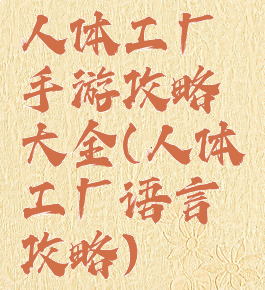 人体工厂
手游攻略
大全(人体
工厂语言
攻略)